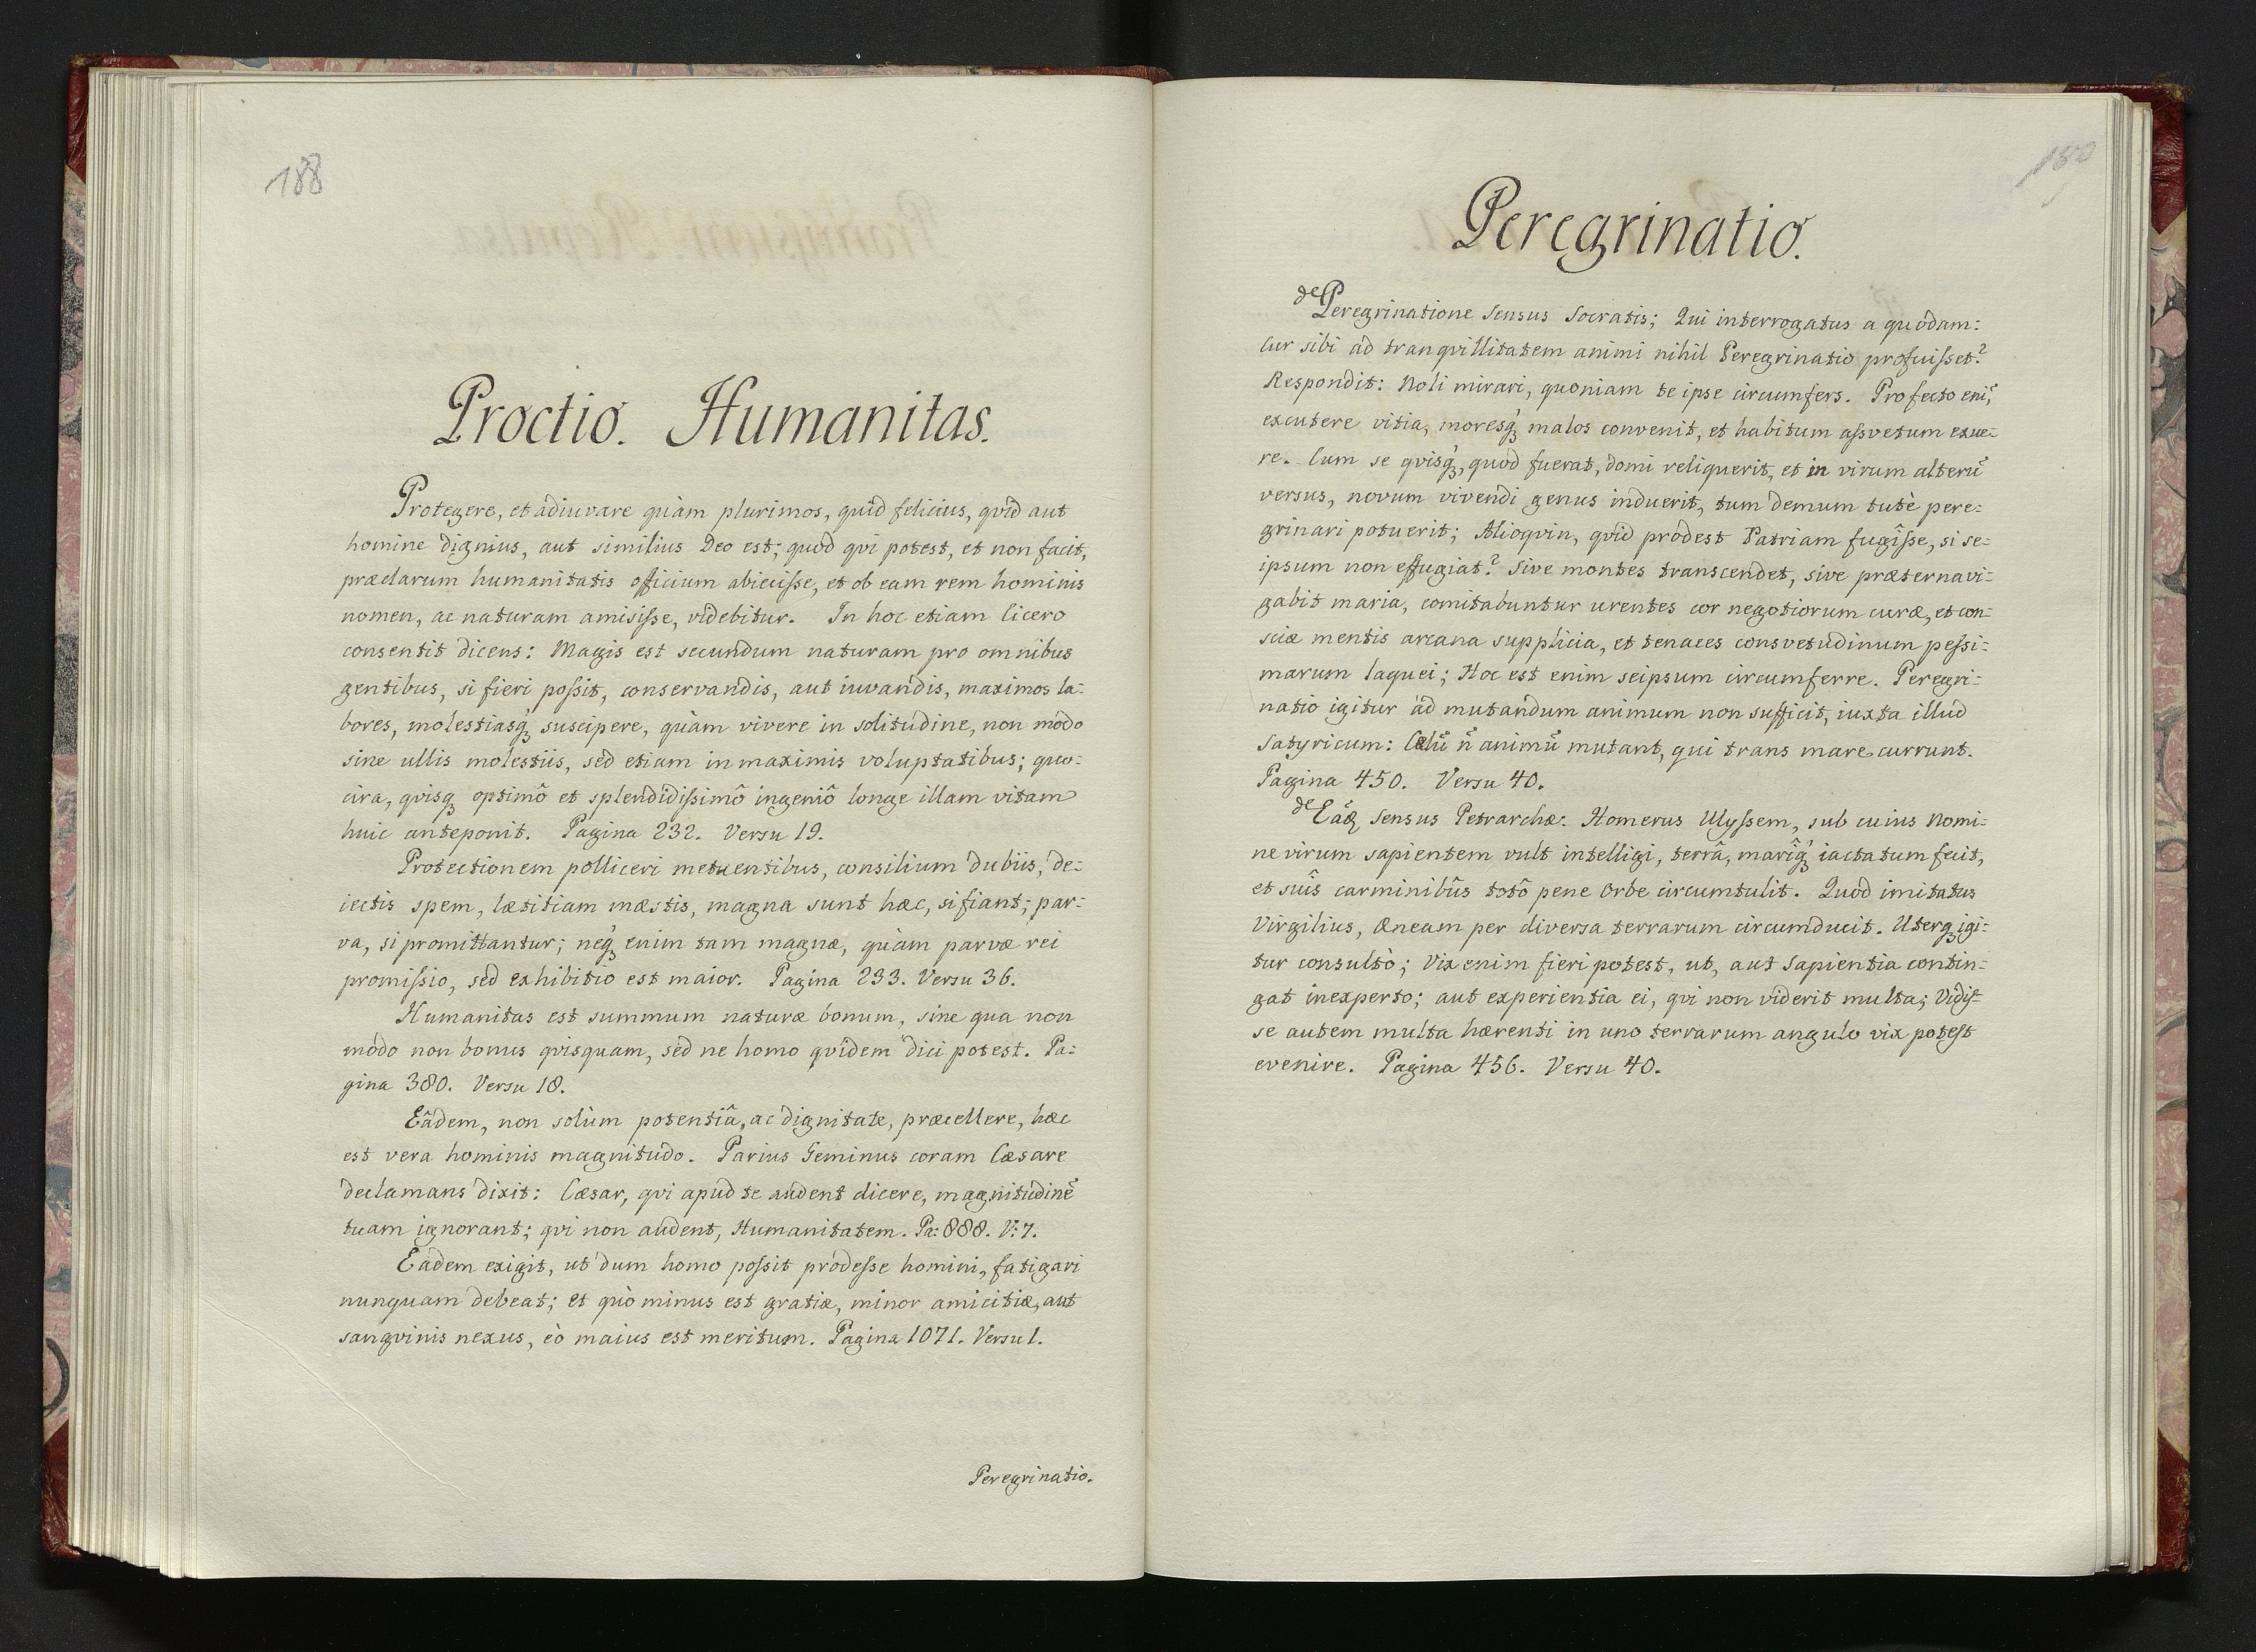 188
Proctio. Humanitas.
Protegere, et adiuvare quàm plurimos, quid felicius, qvid aut
homine dignius, aut similius Deo est; quod qvi potest, et non facit,
præclarum humanitatis officium abiecisse, et ob eam rem hominis
nomen, ac naturam amisisse, videbitur. In hoc etiam Cicero
consentit dicens: Magis est secundum naturam pro omnibus
gentibus, si fieri possit, conservandis, aut iuvandis, maximos la-
bores, molestiasq́ꝫ suscipere, quàm vivere in solitudine, non modo
sine ullis molestiis, sed etiam in maximis voluptatibus; quo-
cira, qvisqꝫ optimô et splendidissimô ingeniô longe illam vitam
huic anteponit. Pagina 232. Versu 19.
Protectionem polliceri metuentibus, consilium dubiis, de-
iectis spem, lætitiam mæstis, magna sunt hæc, si fiant; par-
va, si promittantur; neq́ꝫ enim tam magnæ, quàm parvæ rei
promissio, sed exhibitio est maior. Pagina 233. Versu 36.
Humanitas est summum naturæ bonum, sine qua non
modo non bonus qvisquam, sed ne homo qvidem dici potest. Pa-
gina 380. Versu 18.
Eâdem, non solùm potentiâ, ac dignitate, præcellere, hæc
est vera hominis magnitudo. Parius Geminus coram Cæsare
declamans dixit: Cæsar, qvi apud te audent dicere, magnitudinē
tuam ignorant; qvi non audent, Humanitatem. Pa: 888. V: 7.
Eadem exigit, ut dum homo possit prodesse homini, fatigari
nunquam debeat; et quò minus est gratiæ, minor amicitiæ, aut
sangvinis nexus, eò maius est meritum. Pagina 1071. Versu 1.
Peregrinatio.
Peregrinatio.
de Peregrinatione sensus Socratis; Qui interrogatus a quodam:
Cur sibi ad tranqvillitatem animi nihil Peregrinatio profuisset?
Respondit: Noli mirari, quoniam te ipse circumfers. Profecto enī,
excutere vitia, moresq́ꝫ malos convenit, et habitum assvetum exue-
re. Cum se qvisq́ꝫ, quod fuerat, domi reliquerit, et in virum alterū
versus, novum vivendi genus induerit, tum demum tutè pere-
grinari potuerit; Alioqvin, qvid prodest Patriam fugîsse, si se-
ipsum non effugiat? Sive montes transcendet, sive præternavi-
gabit maria, comitabuntur urentes cor negotiorum curæ, et con-
sciæ mentis arcana supplicia, et tenaces consvetudinum pessi-
marum laquei; Hoc est enim seipsum circumferre. Peregri-
natio igitur ad mutandum animum non sufficit, iuxta illud
Satyricum: Cælū n̄ animū mutant, qui trans mare currunt.
Pagina 450. Versu 40.
de Eâꝫ sensus Petrarchæ. Homerus Ulyssem, sub cuius nomi-
ne virum sapientem vult intelligi, terrâ, mariq́ꝫ iactatum fecit,
et suîs carminibûs totô pene Orbe circumtulit. Quod imitatus
Virgilius, Æneam per diversa terrarum circumducit. Uterqꝫ igi-
tur consultò; Vix enim fieri potest, ut, aut Sapientia contin-
gat inexperto; aut experientia ei, qvi non viderit multa; Vidis-
se autem multa hærenti in uno terrarum angulo vix potest
evenire. Pagina 456. Versu 40.